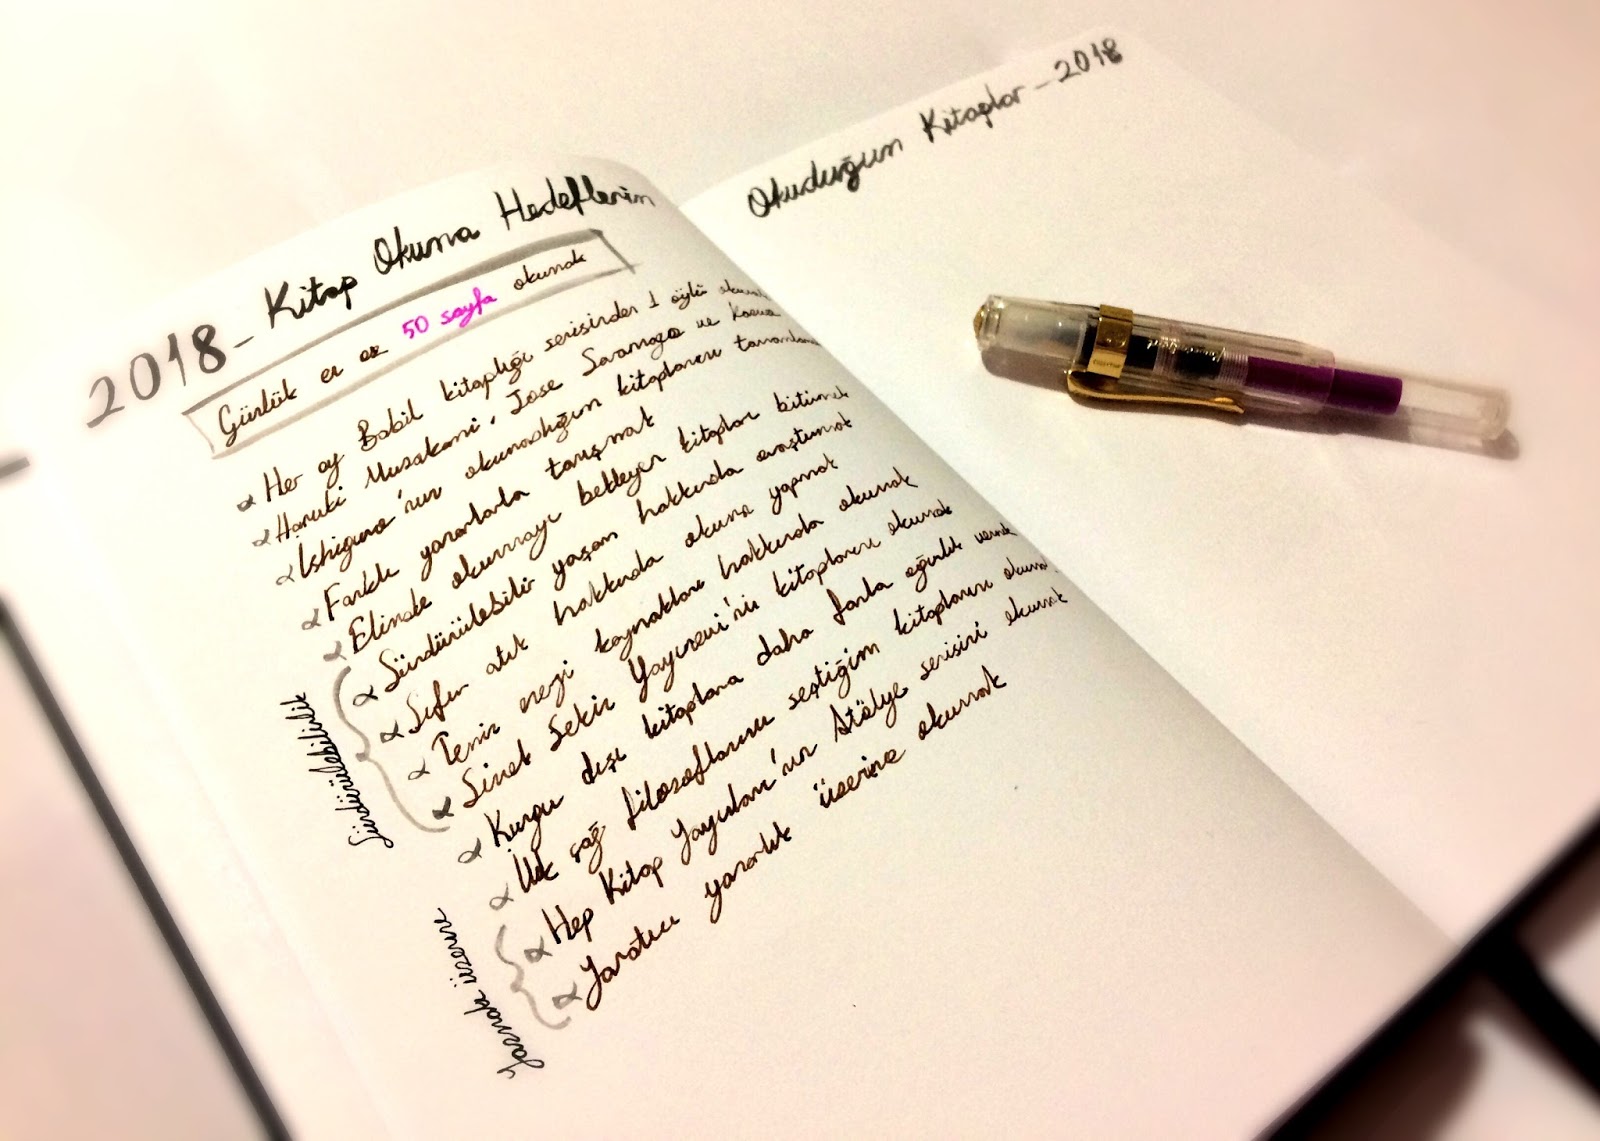 2018_ Kitap Okuma Hedeflerim
Günlük en az 50 sayfa okumak
Her ay Babil kitaplığı serisinden 1 öykü okumak
Haruki Murakami, Jose Saramago ve Kazuo
Ishiguro'nun okumadığım kitaplarını tamamlamak
Farklı yazarlarla tanışmak
Elimde okunmayı bekleyen kitapları bitirmek
Sürdürülebilir yaşam hakkında araştırmak
Sıfır atık hakkında okuma yapmak
Temiz enerji kaynakları hakkında okumak
Sinek Sekiz Yayınevi'nin kitaplarını okumak
Kurgu dışı kitaplara daha fazla ağırlık vermek
İlk çağ filozoflarını seçtiğim kitaplarını okumak
Hep Kitap Yayınları'nın Atölye serisini okumak
Yaratıcı yazarlık üzerine okumak
Sürdürülebilirlik
Yazmak üzerine
Okuduğum Kitaplar_2018